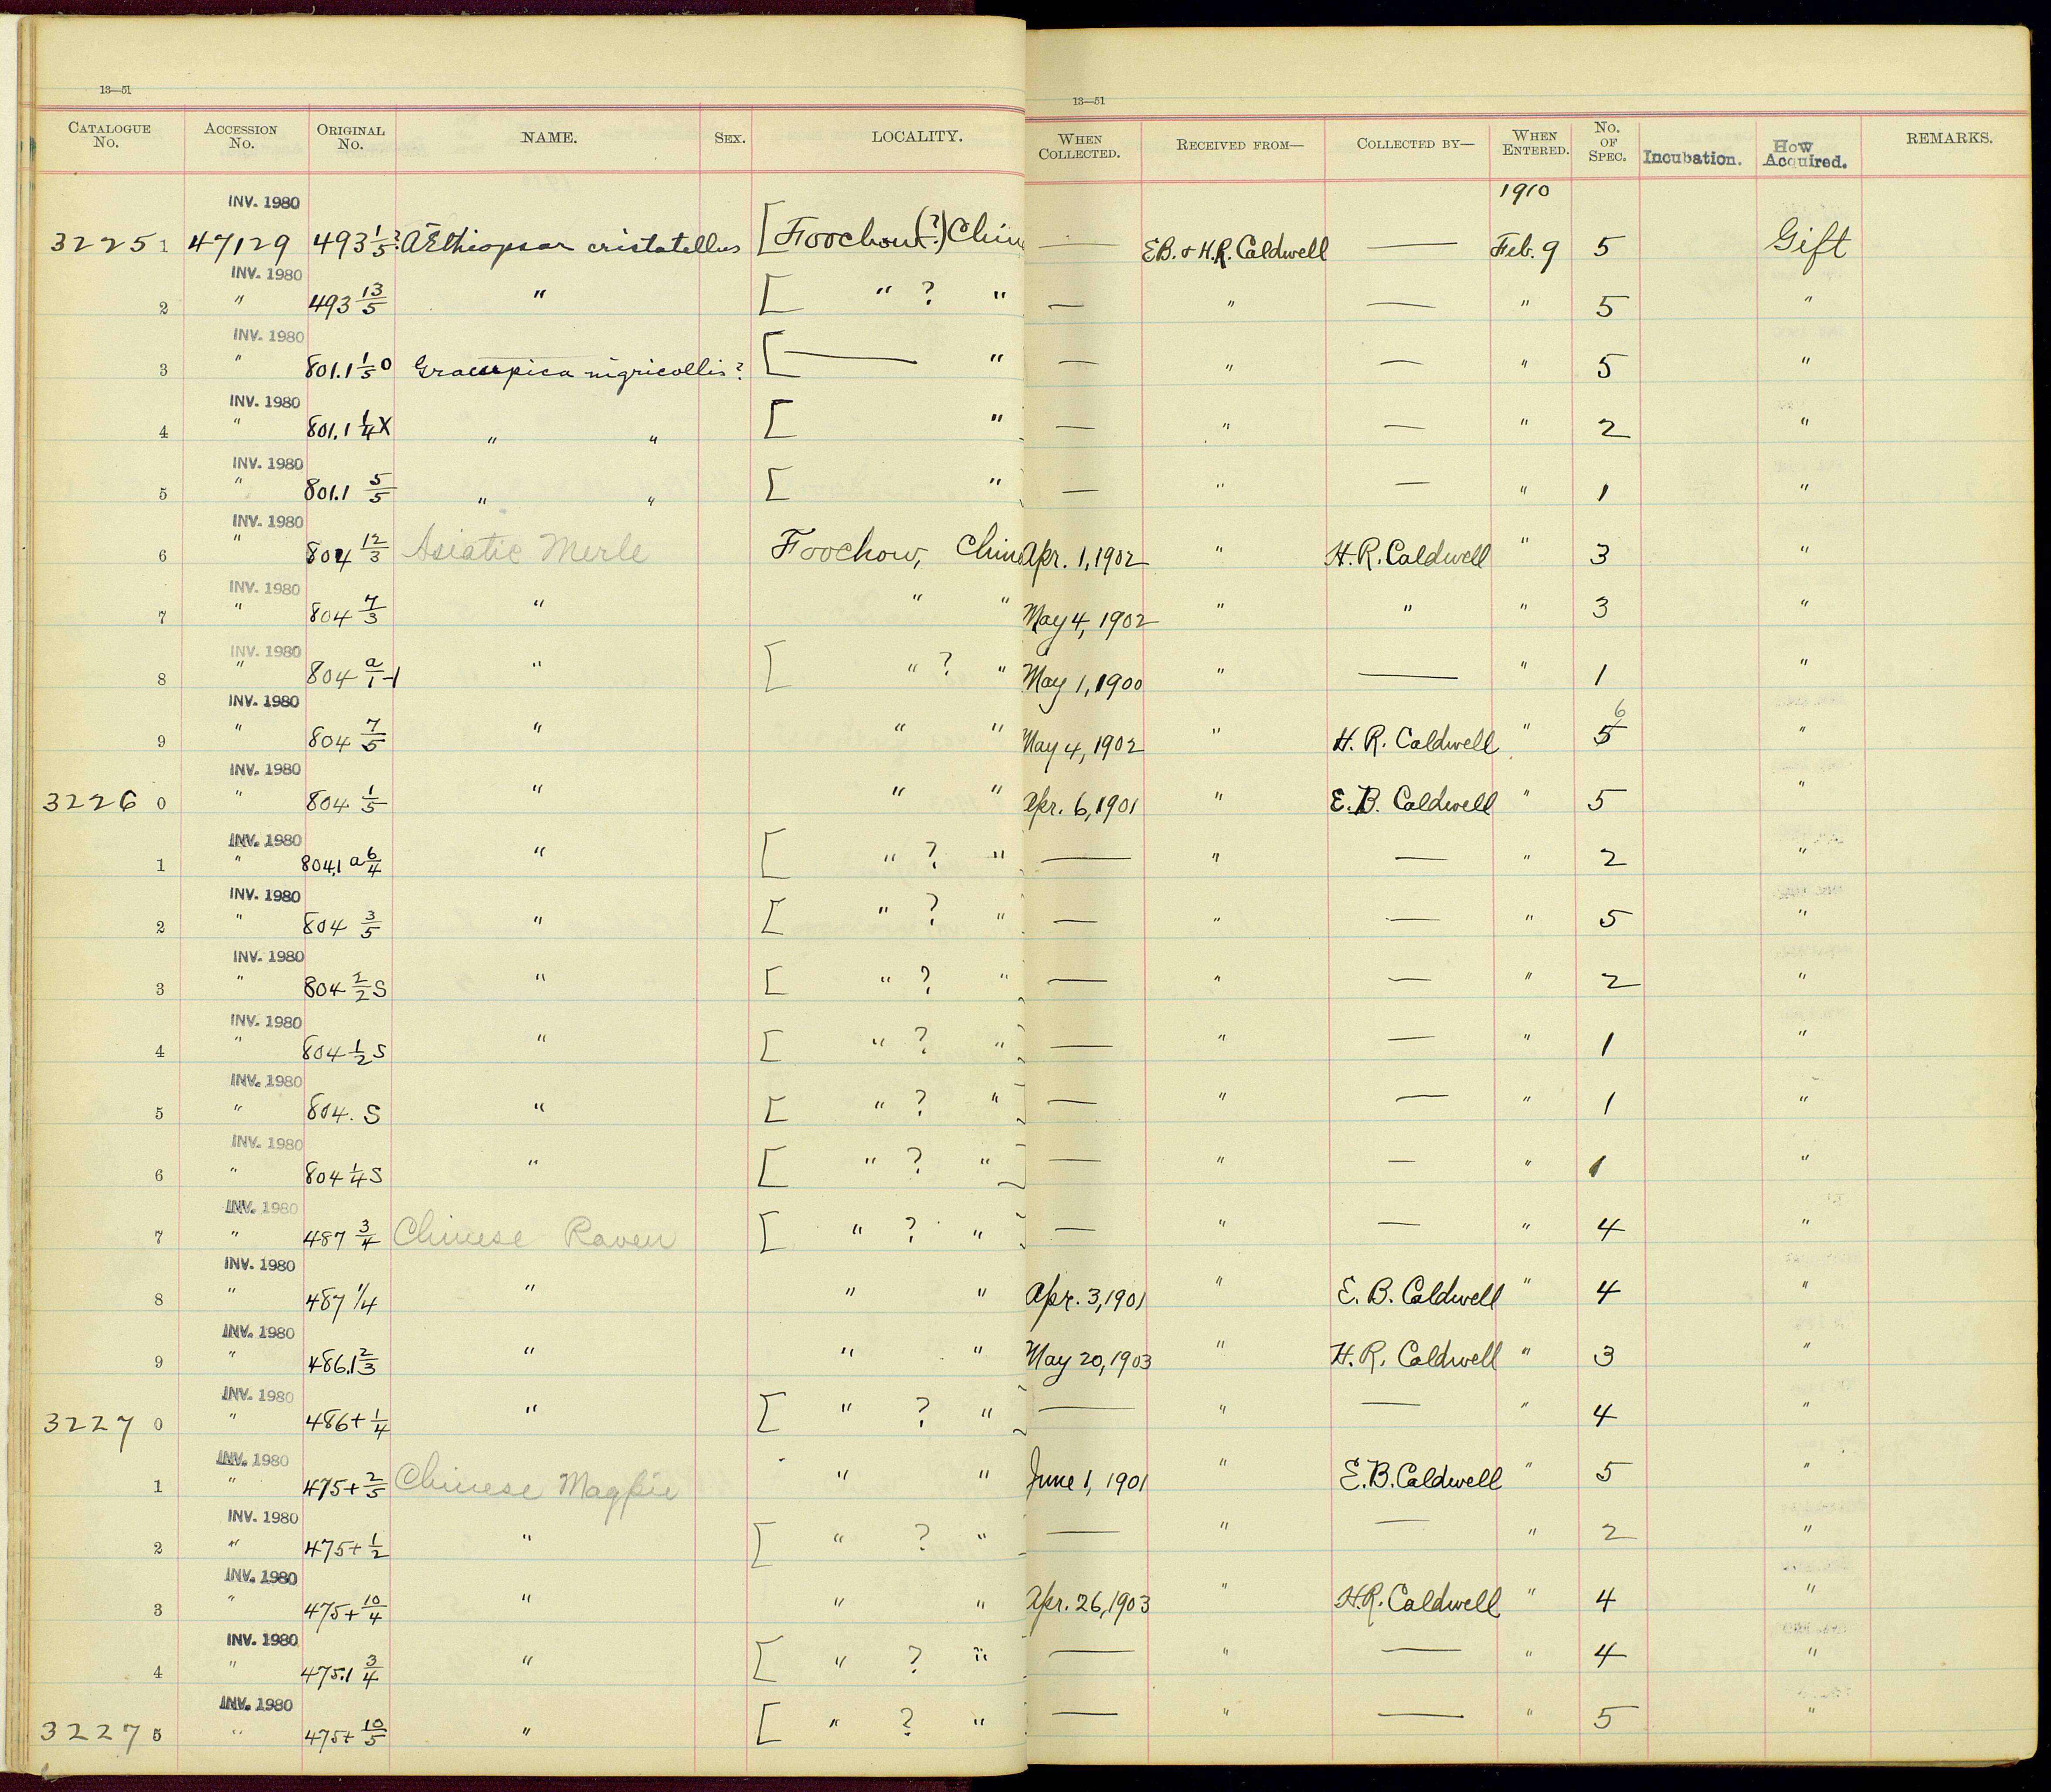 13—51 13—51
CATALOGUE No. ACCESSION No. ORIGINAL No. NAME. SEX. LOCALITY. WHEN COLLECTED. RECEIVED FROM— COLLECTED BY— WHEN ENTERED. No. OF SPEC. Incubation. How Acquired. REMARKS.
INV. 1980 1910
3225 1 47129 493 1/5 ? Æthiopsar cristatellus [Foochow (?) Chin — E.B. & H.R. Caldwell — Feb. 9 5 Gift
INV. 1980
2 " 493 13/5 " [ " ? " — " — " 5 "
INV. 1980
3 " 801.1 1/5 0 Graucupica nigricollis? [ — " — " — " 5 "
INV. 1980
4 " 801.1 1/4 X " " [ " — " — " 2 "
INV. 1980
5 " 801.1 5/5 " " [ " — " — " 1 "
INV. 1980
6 " 804 12/3 Asiatic Merle Foochow, Chin Apr. 1, 1902 " H. R. Caldwell " 3 "
INV. 1980
7 " 804 7/3 " " " May 4, 1902 " " " 3 "
INV. 1980
8 " 804 a/1-1 " [ " ? " May 1, 1900 " — " 1 "
INV. 1980 6
9 " 804 7/5 " " " May 4, 1902 " H. R. Caldwell " 5 "
INV. 1980
3226 0 " 804 1/5 " " " Apr. 6, 1901 " E. B. Caldwell " 5 "
INV. 1980
1 " 804.1 a 6/4 " [ " ? " — " — " 2 "
INV. 1980
2 " 804 3/5 " [ " ? " — " — " 5 "
INV. 1980
3 " 804 2/2 S " [ " ? " — " — " 2 "
INV. 1980
4 " 804 1/2 S " [ " ? " ] — " — " 1 "
INV. 1980
5 " 804. S " [ " ? " ] — " — " 1 "
INV. 1980
6 " 804 1/4 S " [ " ? " ] — " — " 1 "
INV. 1980
7 " 487 3/4 Chinese Raven [ " ? " ] — " — " 4 "
INV. 1980
8 " 487 1/4 " " " Apr. 3, 1901 " E. B. Caldwell " 4 "
INV. 1980
9 " 486.1 2/3 " " " May 20, 1903 " H. R. Caldwell " 3 "
INV. 1980
3227 0 " 486+ 1/4 " [ " ? " ] — " — " 4 "
INV. 1980
1 " 475+ 2/5 Chinese Magpie " " June 1, 1901 " E. B. Caldwell " 5 "
INV. 1980
2 " 475+ 1/2 " [ " ? " — " — " 2 "
INV. 1980
3 " 475+ 10/4 " " " Apr. 26, 1903 " H. R. Caldwell " 4 "
INV. 1980
4 " 475.1 3/4 " [ " ? " — " — " 4 "
INV. 1980
3227 5 " 475+ 10/5 " [ " ? " — " — " 5 "